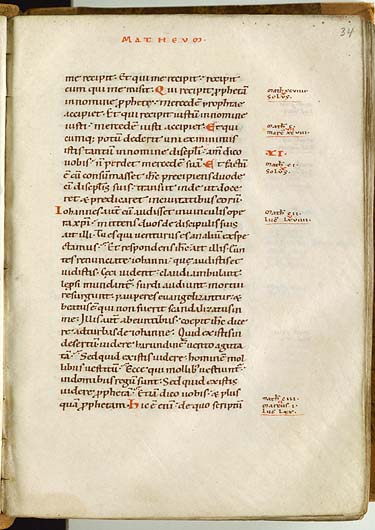 MATHEUM
34
me recipit. Et qui me recipit. recipit
eum qui me misit. Qui recipit pphetam
in nomine pphetę. mercedē pphetae
accipiet. Et qui recipit iustū in nomine
iusti. mercedē iusti accipiet. Et qui
cumq; potū dederit uni ex minimis
istis tantū in nomine discipli. amēn dico
uobis. n̄ perdet mercedē suā. Et factū
ē cū consūmasset ihc precipiens duode
cī discipĺis suis. transiit inde ut doce
ret & predicaret in ciuitatibus eorū.
Iohannes aut cū audisset in uinculis ope
ra xpi. mittens duos de discipulis suis
ait illi. Tu es qui uenturus es. an aliū expe
ctamus. Et respondens ihc ait illis. Eun
tes renunciate iohanni. quę audistis et
uidistis. Ceci uident. claudi ambulant.
lepsi mundant. surdi audiunt. mortui
resurgunt. pauperes euangelizantur. &
beatus ē qui non fuerit scandalizatus in
me. Illis aut abeuntibus. coepit ihc dice
re ad turbas de iohanne. Quid existis in
desertū uidere. harundinē uento agita
tā. Sed quid existis uidere. hominē mol
libus uestitū. Ecce qui mollib; uestiunt.
in domibus regū sunt. Sed quid existis
uidere. pphetā. Etiā dico uobis. & plus
quā pphetam. Hic ē eni de quo scriptū
solus.
XI.
solus.